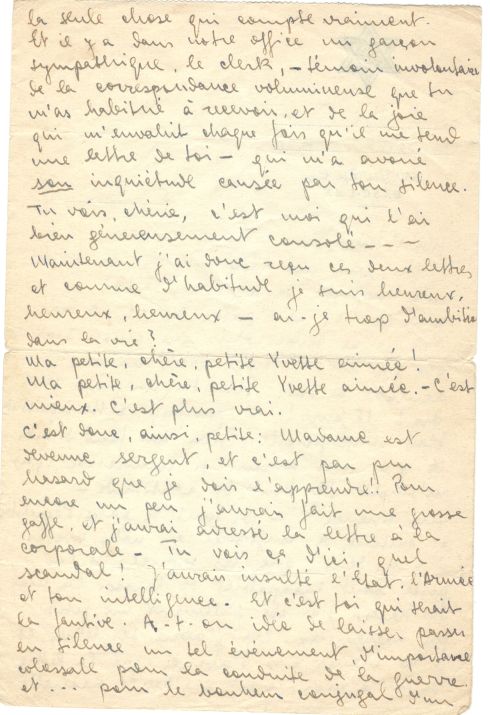 la seule chose qui compte vraiment.
Et il y a dans notre office un garçon
sympathique, le clerk, – témoin involontaire
de la correspondance volumineuse que tu
m'as habitué à recevoir, et de la joie
qui m'envahit chaque fois qu'il me tend
une lettre de toi – qui m'a avoué
son inquiétude causée par ton silence.
Tu vois, chérie, c'est moi qui l'ai
bien généreusement consolé – – –
Maintenant j'ai donc reçu ces deux lettres
et comme d'habitude je suis heureux,
heureux, heureux – ai-je trop d'ambition
dans la vie?
Ma petite, chère, petite Yvette aimée!
Ma petite, chère, petite Yvette aimée. – C'est
mieux. C'est plus vrai.
C'est donc, ainsi, petite: Madame est
devenue sergent, et c'est par pur
hasard que je dois l'apprendre!! Pour
encore un peu j'aurai fait une grosse
gaffe, et j'aurai adressé la lettre à la
corporale – Tu vois ça d'ici, quel
scandal! J'aurai insulté l'État, l'Armée
et ton intelligence. Et c'est toi qui serait
la fautive. A-t-on idée de laisser passer
en silence un tel événement, d'importance
colossale pour la conduite de la guerre
et ... pour le bonheur conjugal d'un